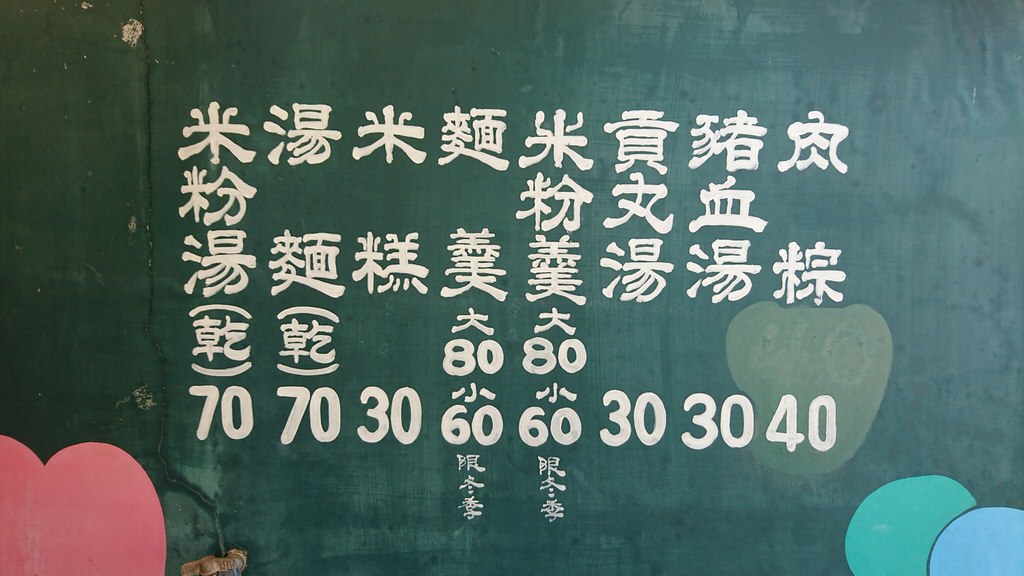 肉粽40
豬血湯30
貢丸湯30
米粉羹大80小60限冬季
麵羹大80小60限冬季
米糕30
湯麵(乾)70
米粉湯(乾)70